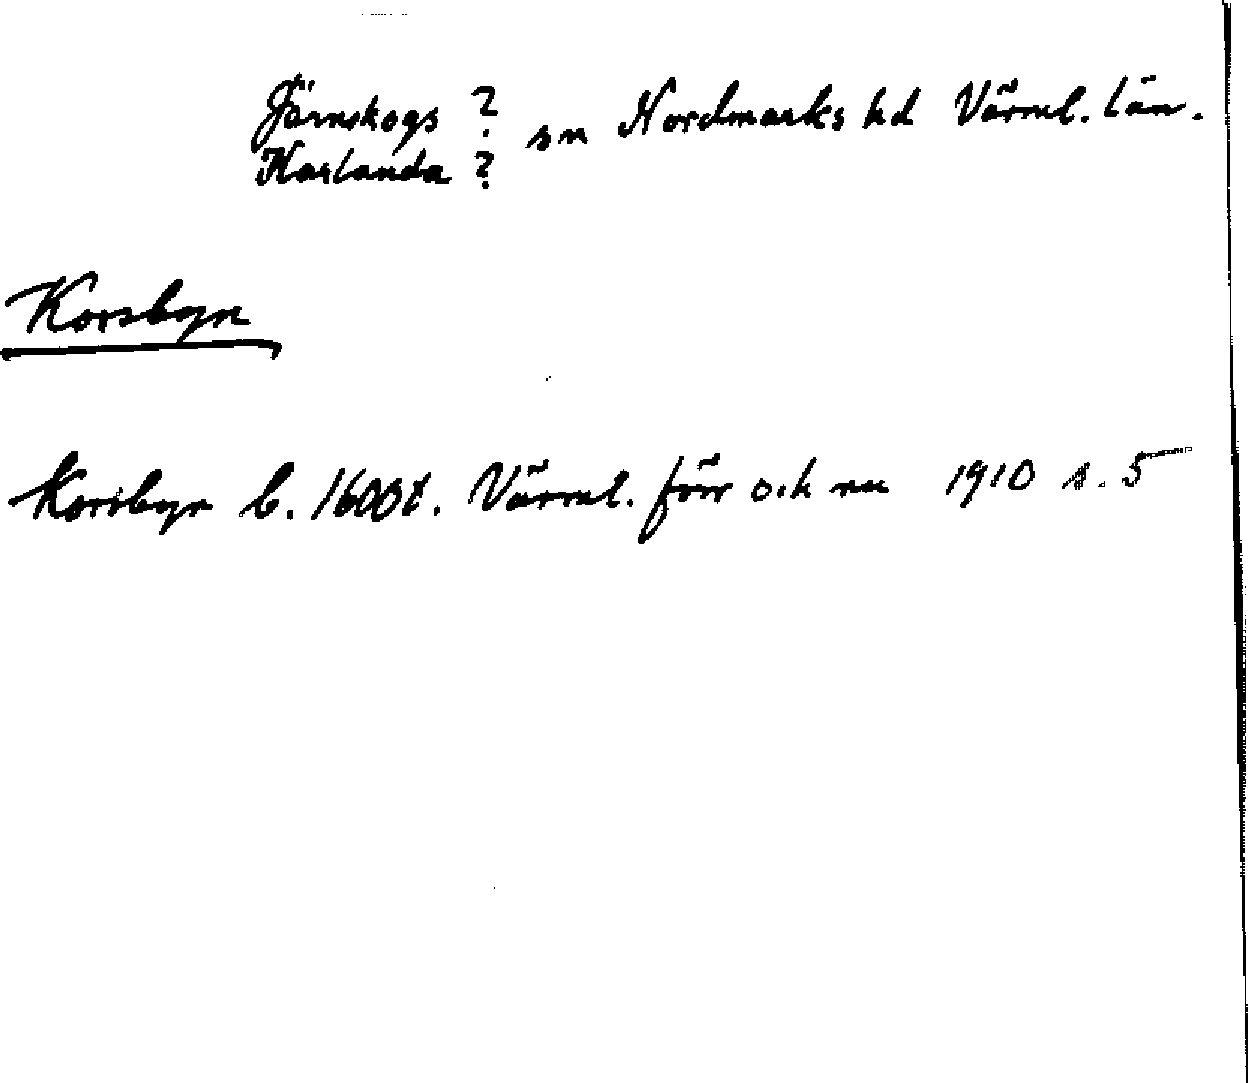 Järnskogs ? sn Nordmarks hd Värml. län.
Karlanda ?
Korsbyn
Korsbyn b. 1600t. Värml. förr och nu 1910 s. 5